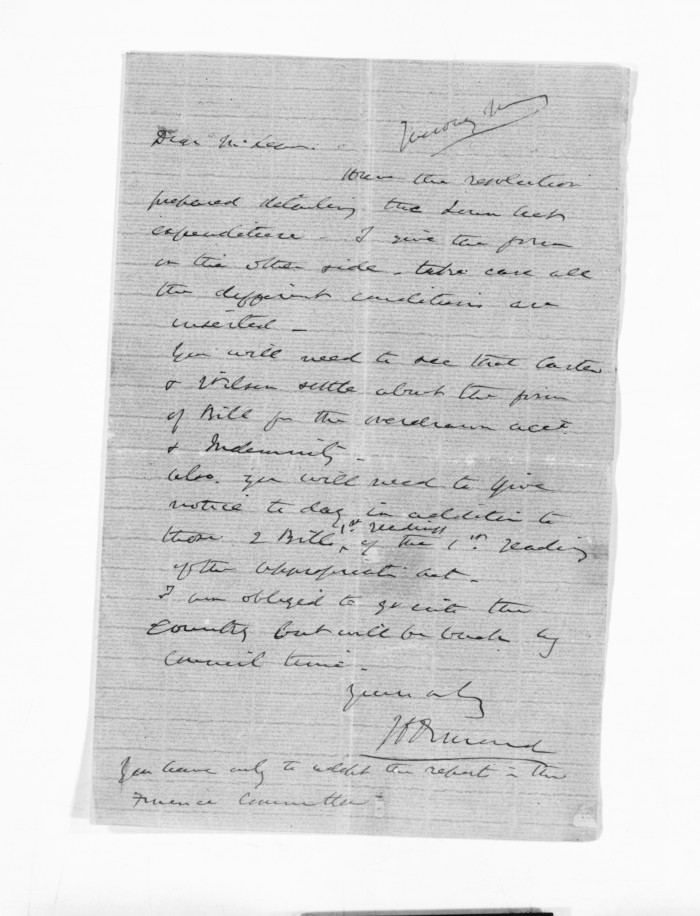 Dear McLean.
Have the resolution
prepared detailing the Loan Act
expenditure - I give the form
on the other side - take care all
the different conditions are
inserted -
You will need to see that Carter
& Wilson settle about the form
of Bill for the overdrawn acct.
& Indemnity -
also. you will need to give
notice to day in addition to
those 2 Bills, 1st readings of the 1st reading
of the appropriation act -
I am obliged to go into the
Country but will be back by
Council time -
Yours truly
J D Ormond
You have only to adopt the report in the
Finance Committee